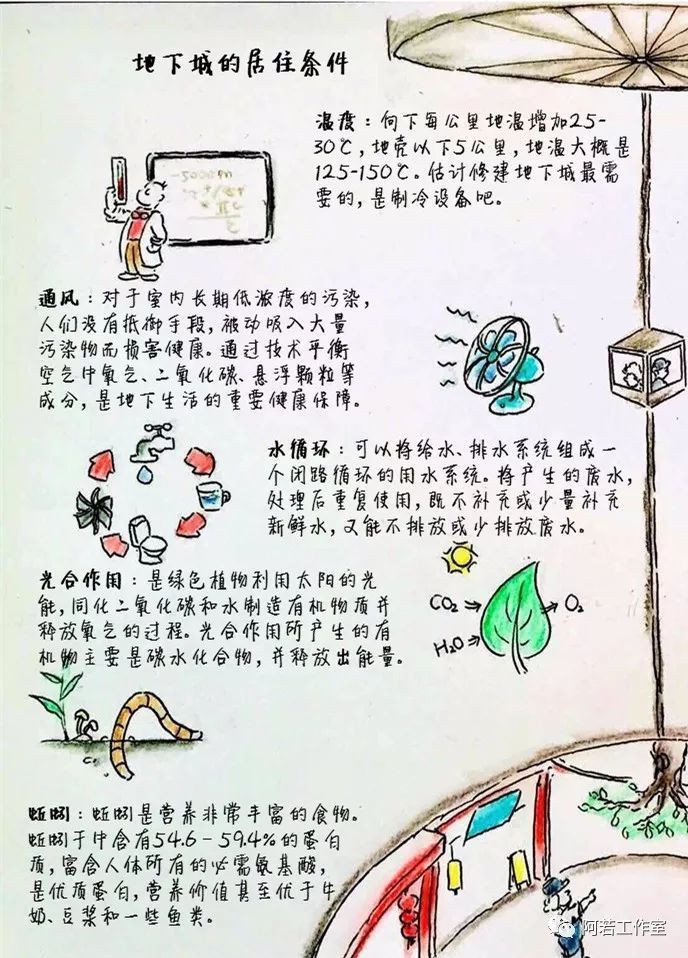 地下城的居住条件
温度：向下每公里地温增加25-
30℃，地壳以下5公里，地温大概是
125-150℃。估计修建地下城最需
要的，是制冷设备吧。
通风：对于室内长期低浓度的污染，
人们没有抵御手段，被动吸入大量
污染物而损害健康。通过技术平衡
空气中氧气、二氧化碳、悬浮颗粒等
成分，是地下生活的重要健康保障。
水循环：可以将给水、排水系统组成一
个闭路循环的用水系统。将产生的废水，
处理后重复使用，既不补充或少量补充
新鲜水，又能不排放或少排放废水。
光合作用：是绿色植物利用太阳的光
能，同化二氧化碳和水制造有机物质并
释放氧气的过程。光合作用所产生的有
机物主要是碳水化合物，并释放出能量。
CO₂
O₂
H₂O
蚯蚓：蚯蚓是营养非常丰富的食物。
蚯蚓干中含有54.6-59.4%的蛋白
质，富含人体所有的必需氨基酸，
是优质蛋白，营养价值甚至优于牛
奶、豆浆和一些鱼类。
阿若工作室